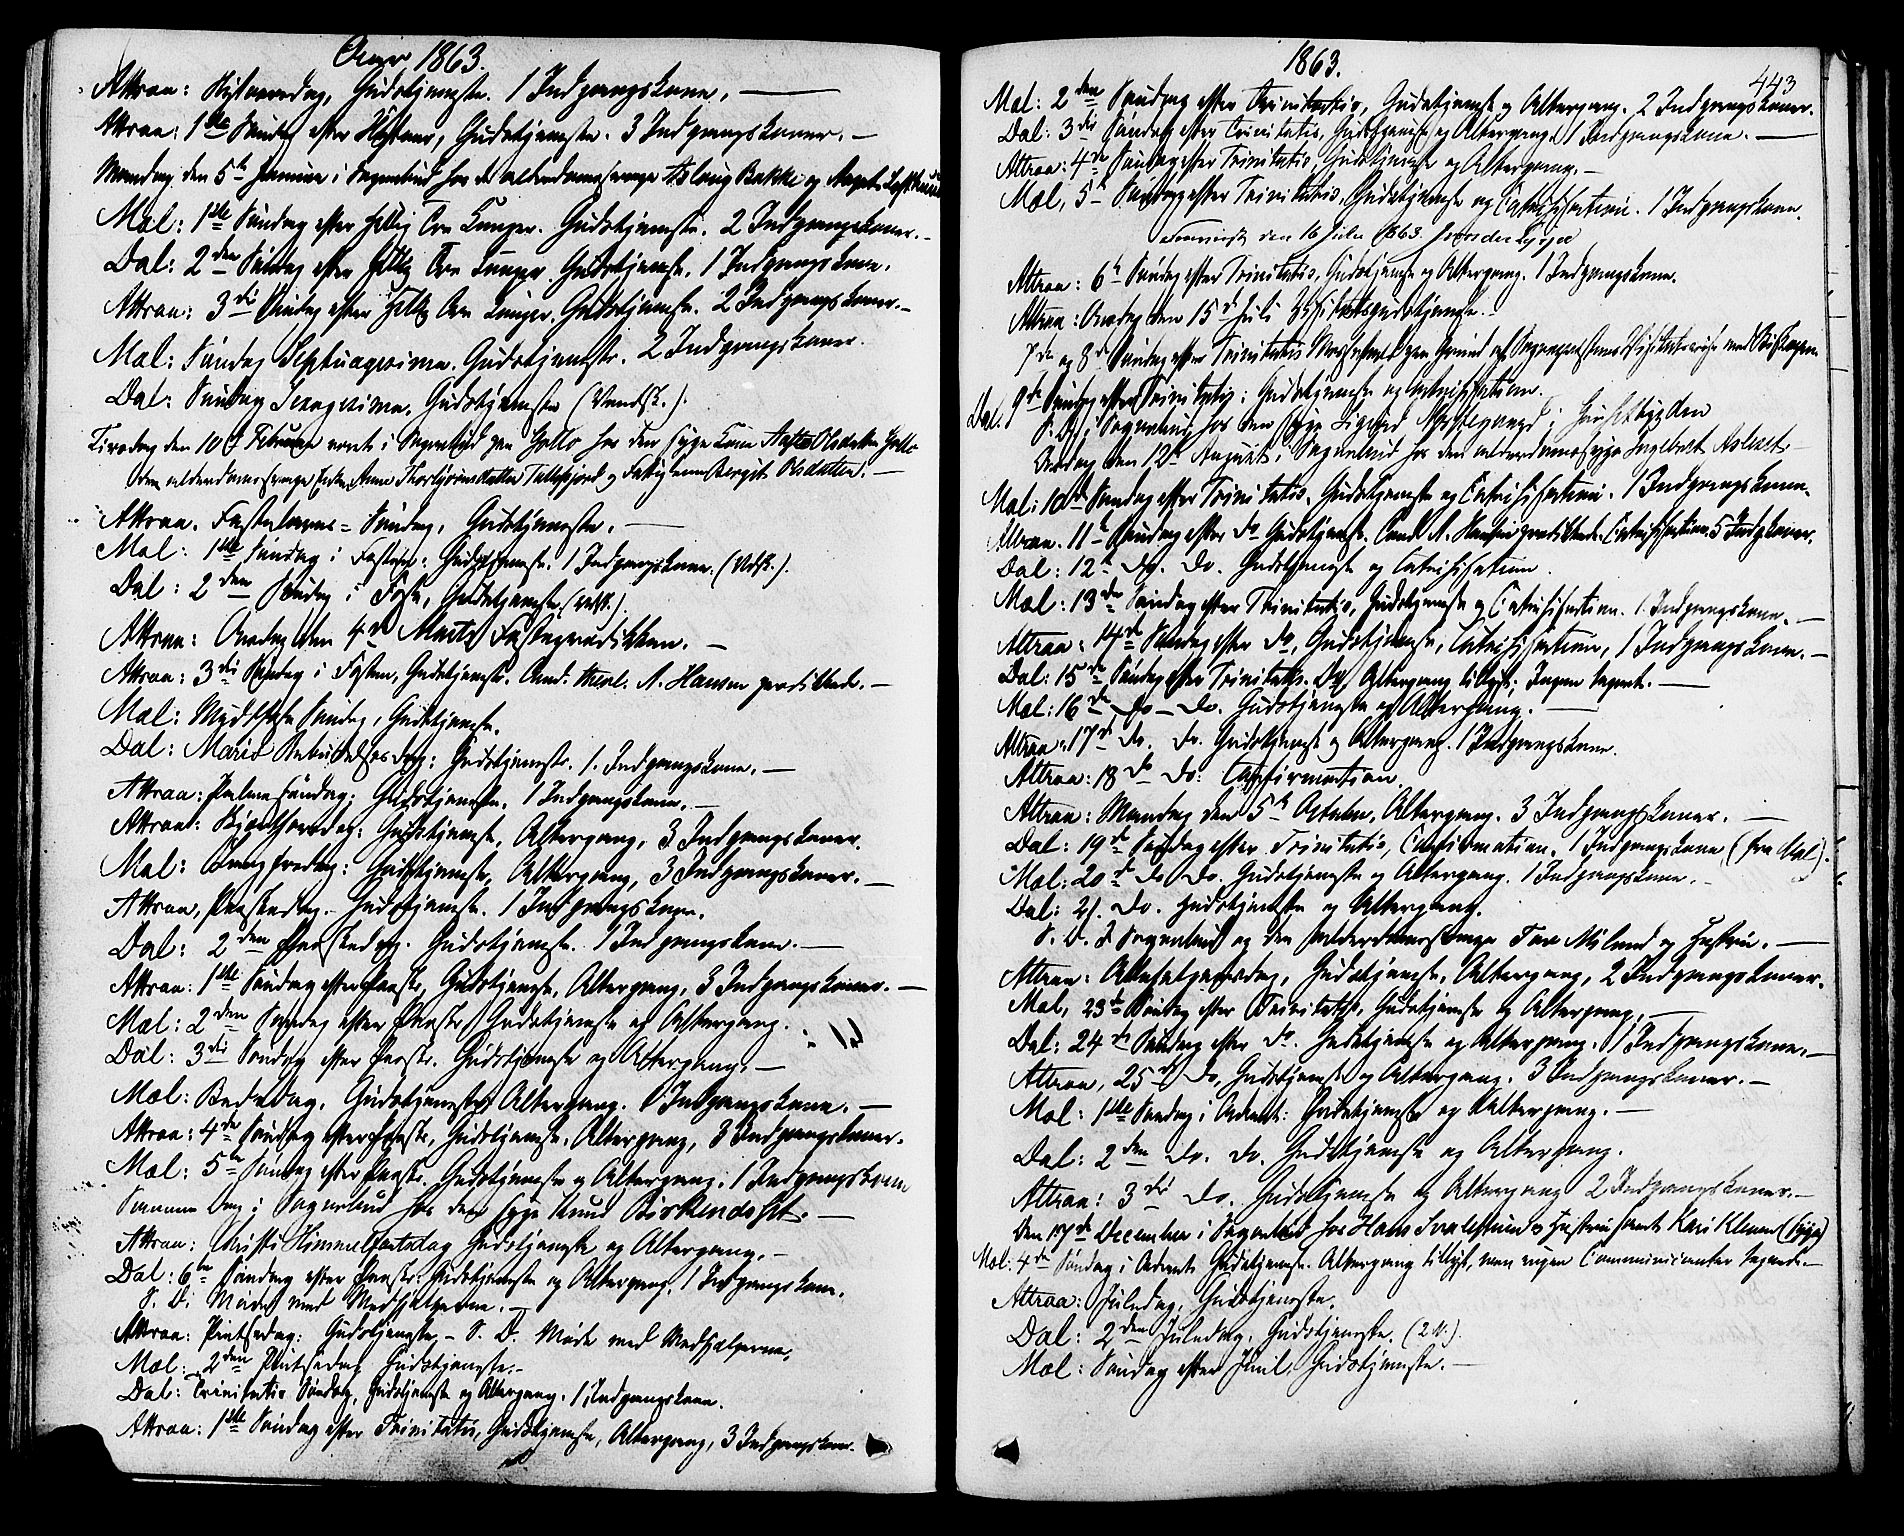 1863.
Attraa: Nytaarsdag, Gudstjeneste. 1 Indgangskone. —
Attraa: 1ste Søndag efter Nytaar, Gudstjeneste. 3 Indgangskoner. —
Mandag den 5te Januar i Sognebud hos de alderdomssvage Aslaug Bakke og
Mæl: 1ste Søndag efter Hellig Tre Konger. Gudstjeneste. 2 Indgangskoner. —
Dal: 2den Søndag efter Hellig Tre Konger. Gudstjeneste. 1 Indgangskone.
Attraa: 3die Søndag efter Hellig Tre Konger. Gudstjeneste. 2 Indgangskoner. —
Mæl: Søndag Septuagesima. Gudstjeneste. 2 Indgangskoner.
Dal: Søndag Sexagesima. Gudstjeneste
Tirsdag den 10de Februar i Sognebud hos den syge Kone
den alderdomssvage Enke Anne Thorbjørnsdatter og Bergit Olsdatter. —
Attraa. Fastelavns-Søndag, Gudstjeneste. —
Mæl: 1ste Søndag i Fasten: Gudstjeneste. 1 Indgangskone.
Dal: 2den Søndag i Faste, Gudstjeneste
Attraa: Onsdag den 4de Marts Fasteprædikken. —
Attraa: 3die Søndag i Fasten, Gudstjeneste. Cand. theol. A. Hansen prædikede. —
Mæl: Midfaste Søndag, Gudstjeneste.
Dal: Mariæ Bebudelsesdag: Gudstjeneste. 1. Indgangskone. —
Attraa: Palmesøndag: Gudstjeneste. 1 Indgangskone. —
Attraa: Skjærthorsdag: Gudstjeneste, Altergang, 3 Indgangskoner.
Mæl: Langfredag: Gudstjeneste, Altergang, 3 Indgangskoner. —
Attraa, Paaskedag. Gudstjeneste. 1 Indgangskone.
Dal: 2den Paaskedag. Gudstjeneste. 1 Indgangskone. —
Attraa: 1ste Søndag efter Paaske, Gudstjeneste, Altergang, 3 Indgangskoner. —
Mæl: 2den Søndag efter Paaske, Gudstjeneste og Altergang.
Dal: 3die Søndag efter Paaske. Gudstjeneste og Altergang. —
Mæl: Bededag, Gudstjeneste, Altergang. 1 Indgangskone. —
Attraa: 4de Søndag efter Paaske, Gudstjeneste, Altergang, 3 Indgangskoner.
Mæl: 5te Søndag efter Paaske. Gudstjeneste og Altergang. 1 Indgangskone
Samme Dag i Sognebud hos den syge Knud —
Attraa: Christi Himmelfartsdag Gudstjeneste og Altergang. —
Dal: 6te Søndag efter Paaske: Gudstjeneste og Altergang. 1 Indgangskone.
S. D. Møde med Medhjælperne. —
Attraa: Pintsedag: Gudstjeneste, — S. D. Møde med Medhjælperne.
Mæl: 2den Pintsedag Gudstjeneste. —
Dal: Trinitatis Søndag, Gudstjeneste og Altergang. 1 Indgangskone.
Attraa: 1ste Søndag efter Trinitatis, Gudstjeneste, Altergang, 3 Indgangskoner.
1863.
443
Mæl: 2den Søndag efter Trinitatis, Gudstjeneste og Altergang. 2 Indgangskoner.
Dal: 3die Søndag efter Trinitatis, Gudstjeneste og Altergang. 1 Indgangskone. —
Attraa: 4de Søndag efter Trinitatis, Gudstjeneste og Altergang. —
Mæl, 5te Søndag efter Trinitatis, Gudstjeneste og Catechisation. 1 Indgangskone.
den 16 Juli 1863.
Attraa: 6te Søndag efter Trinitatis, Gudstjeneste og Altergang. 1 Indgangskone.
Attraa: Onsdag den 15de Juli Visitatsgudstjeneste. —
7de og 8de Søndag efter Trinitatis Messefald paa Grund af Sognepræstens Visitatsreise med Biskopen
Dal. 9de Søndag efter Trinitatis: Gudstjeneste og Catechisation.
S. D. i Sognebud hos den syge
Onsdag den 12te August i Sognebud hos den alderdomssvage Ingebret
Mæl: 10de Søndag efter Trinitatis. Gudstjeneste og Catechisation. 1 Indgangskone.
Attraa. 11te Søndag efter Do Gudstjeneste. Cand. A. Hansen prædikede. Catechisation. 5 Indg.koner.
Dal: 12te Do. Do. Gudstjeneste og Catechisation.
Mæl: 13de Søndag efter Trinitatis, Gudstjeneste og Catechisation. 1 Indgangskone. —
Attraa: 14de Søndag efter Do, Gudstjeneste, Catechisation, 1 Indgangskone. —
Dal: 15de Søndag efter Trinitatis. Altergang tillyst; Ingen søgende. —
Mæl: 16de Do — Do. Gudstjeneste og Altergang. —
Attraa: 17de Do. Do. Gudstjeneste og Altergang. 1 Indgangskone.
Attraa: 18de Do: Confirmation.
Attraa: Mandag den 5te October, Altergang. 3 Indgangskoner. —
Dal: 19de Søndag efter Trinitatis, Confirmation. 1 Indgangskone (fra Mæl).
Mæl: 20de Do Do. Gudstjeneste og Altergang. 1 Indgangskone. —
Dal: 21. Do. Gudstjeneste og Altergang.
S. D. I Sognebud og den alderdomssvage og Hustru. —
Attraa: Allehelgensdag, Gudstjeneste, Altergang, 2 Indgangskoner.
Mæl, 23de Søndag efter Trinitatis, Gudstjeneste og Altergang. —
Dal: 24de Søndag efter Do. Gudstjeneste og Altergang. 1 Indgangskone. —
Attraa, 25de Do. Gudstjeneste og Altergang. 3 Indgangskoner. —
Mæl: 1ste Søndag i Advent: Gudstjeneste og Altergang. —
Dal: 2den Do. Do. Gudstjeneste og Altergang.
Attraa: 3die Do. Gudstjeneste og Altergang 2 Indgangskoner. —
Den 17de December i Sognebud hos Hans og Hustru samt Kari (syge)
Mæl: 4de Søndag i Advent Gudstjeneste. Altergang tillyst, men ingen Communicanter søgende. —
Attraa: Juledag, Gudstjeneste.
Dal: 2den Juledag. Gudstjeneste.
Mæl: Søndag efter Juul, Gudstjeneste. —